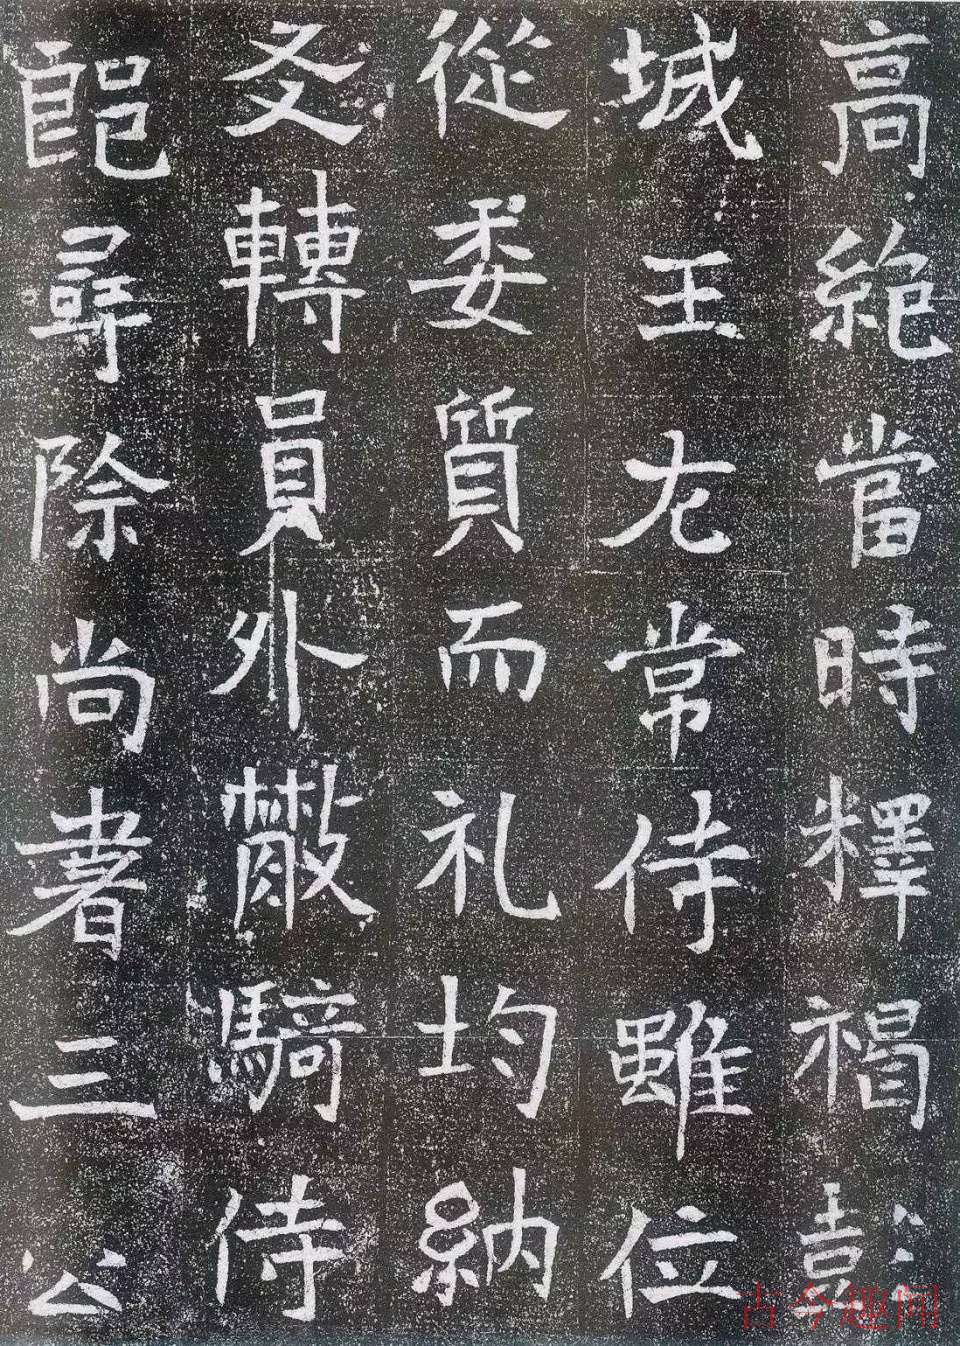 高絶當時釋褐彭
城王左常侍雖位
從委質而礼均納
友轉員外散騎侍
郎尋除尚書三公
古今趣闻